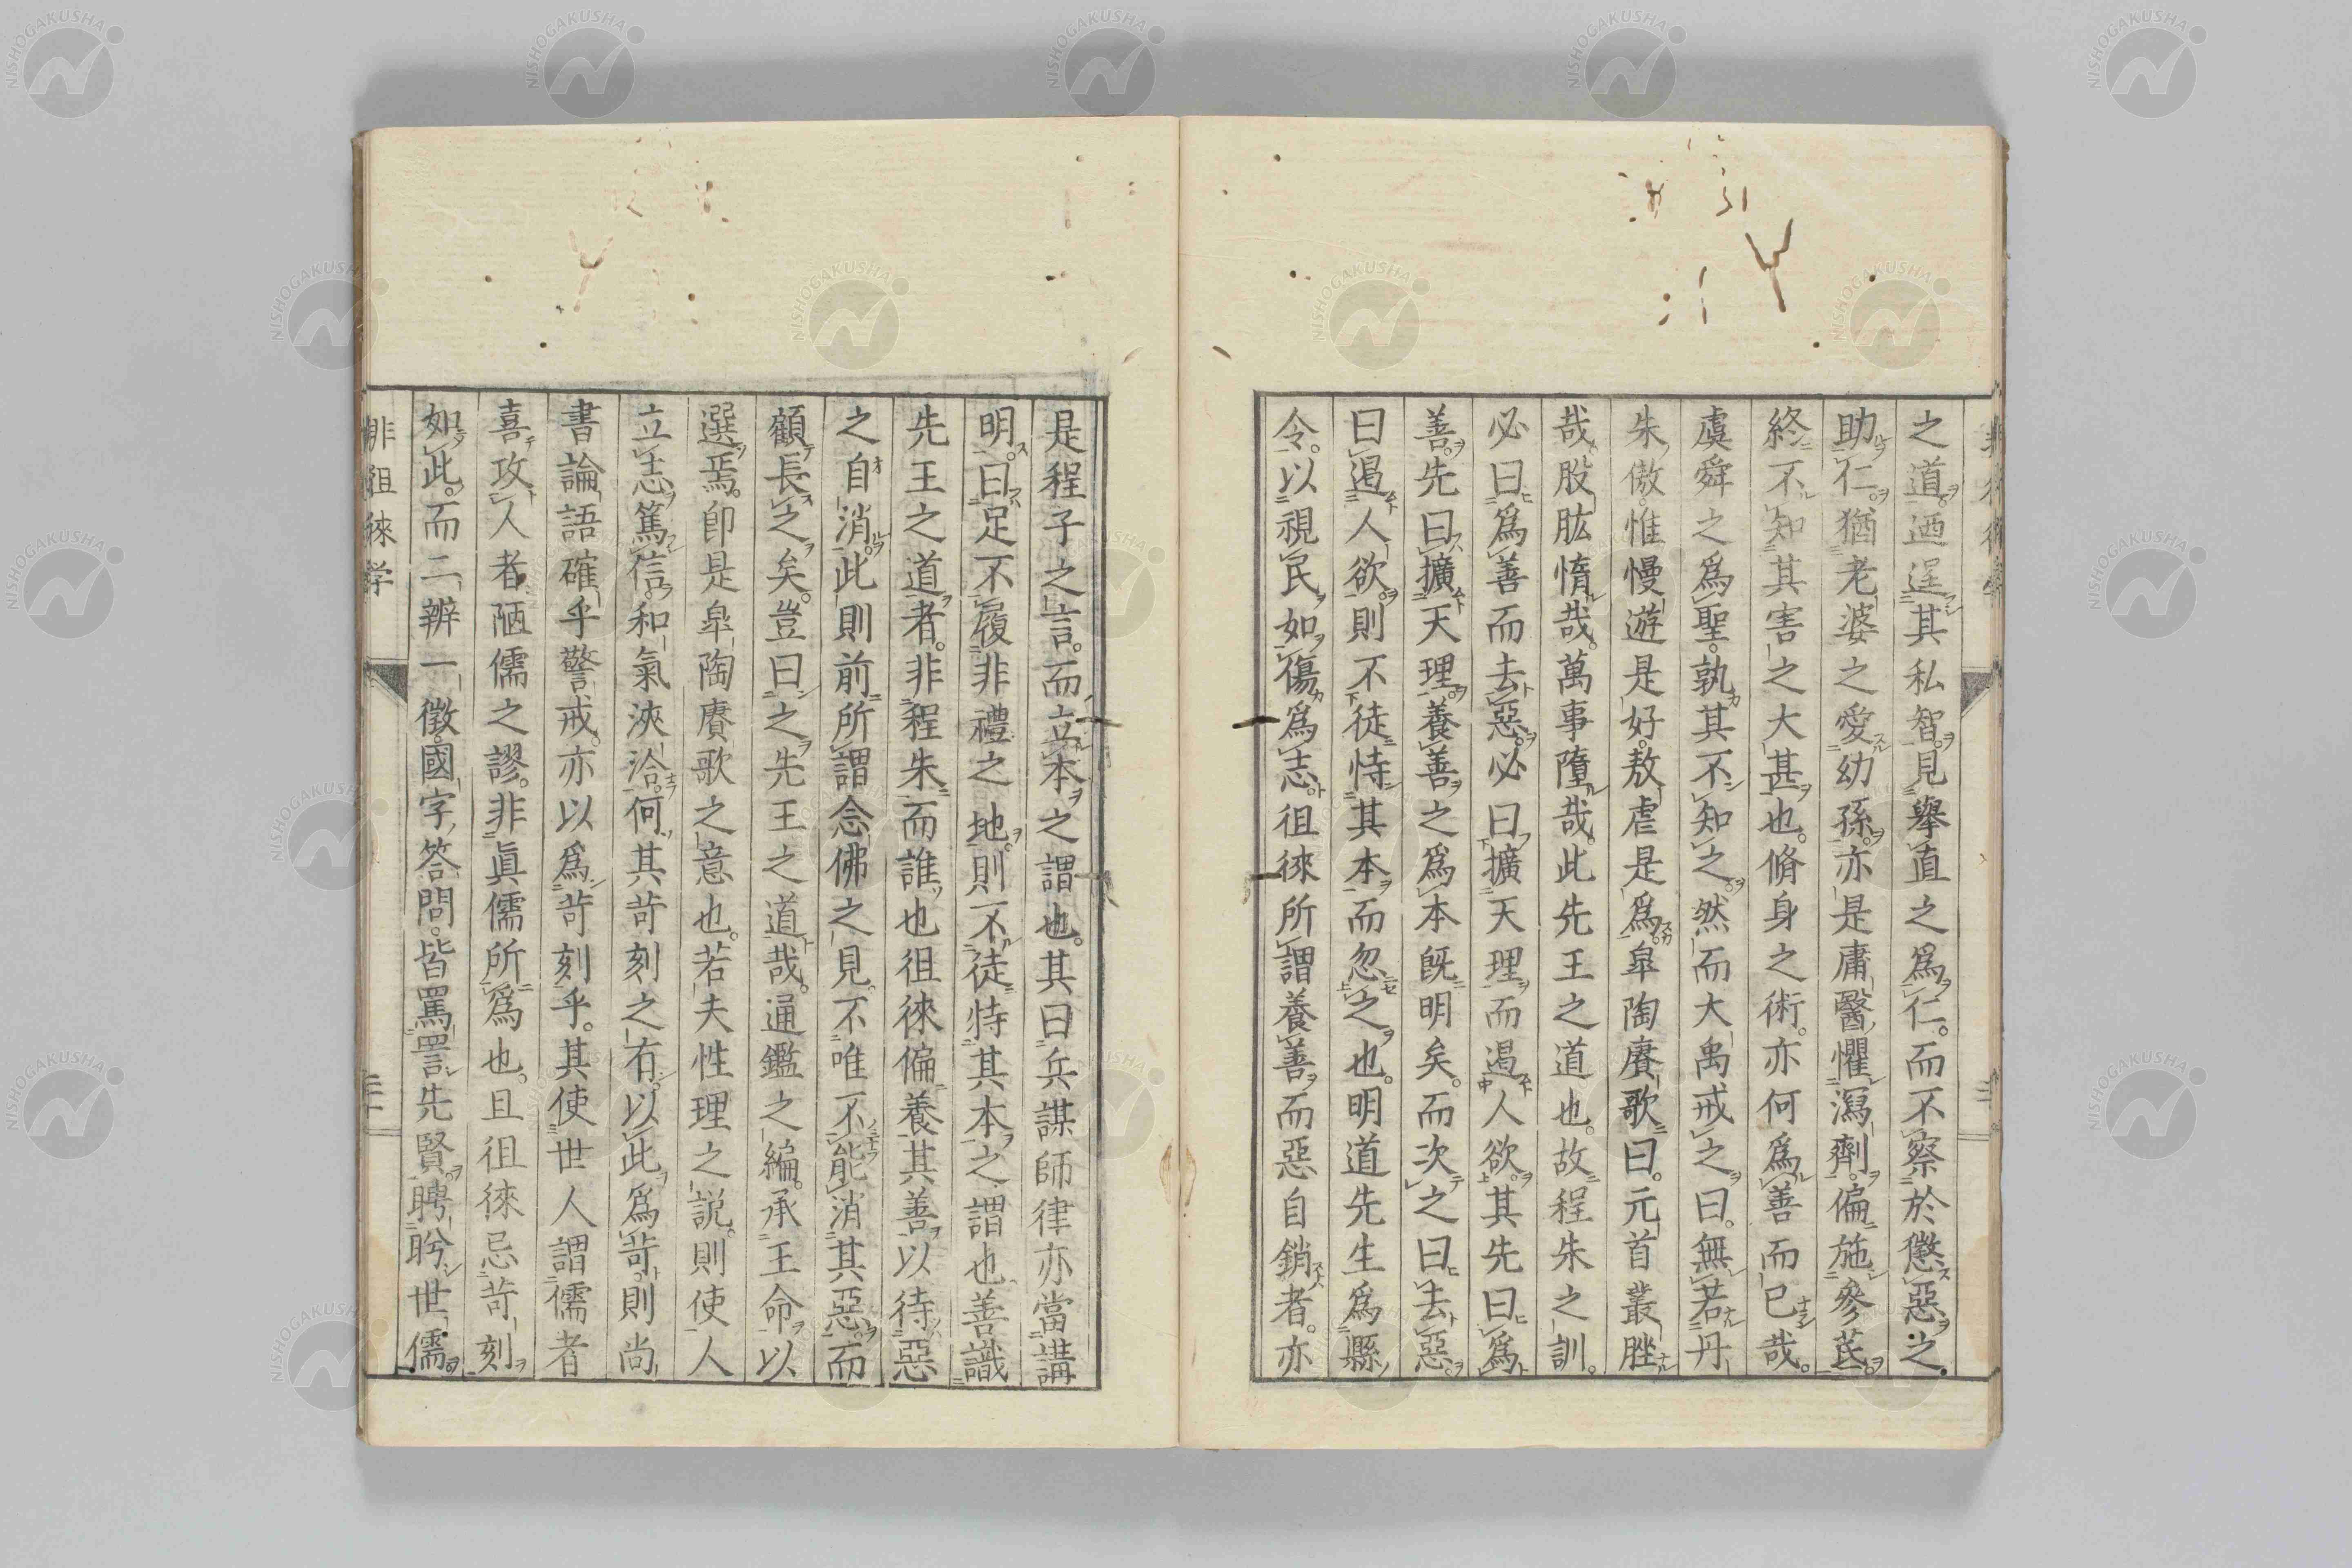 之道。迺逞其私智。見擧直之爲仁。而不察於懲惡之
助仁。猶老婆之愛幼孫。亦是庸醫懼瀉劑。偏施參芪。
終不知其害之大甚也。脩身之術。亦何爲善而已哉。
虞舜之爲聖。孰其不知之。然而大禹戒之曰。無若丹
朱傲。惟慢遊是好。敖虐是爲。皐陶賡歌曰。元首叢脞
哉。股肱惰哉。萬事墮哉。此先王之道也。故程朱之訓。
必曰爲善而去惡。必曰擴天理而遏人欲。其先曰爲
善。先曰擴天理。養善之爲本既明矣。而次之曰去惡
曰遏人欲。則不徒恃其本而忽之也。明道先生爲縣
令。以視民如傷爲志。徂徠所謂養善而惡自銷者。亦
是程子之言。而立本之謂也。其曰兵謀師律亦當講
明。曰足不履非禮之地。則不徒恃其本之謂也。善識
先王之道者。非程朱而誰也徂徠偏養其善以待惡
之自消。此則前所謂念佛之見。不唯不能消其惡。而
顧長之矣。豈曰之先王之道哉。通鑑之編。承王命以
選焉。卽是皐陶賡歌之意也。若夫性理之説。則使人
立志篤信。和氣浹洽。何其苛刻之有。以此爲苛。則尚
書論語確乎警戒。亦以爲苛刻乎。其使世人謂儒者
喜攻人者。陋儒之謬。非眞儒所爲也。且徂徠忌苛刻
如此。而二辨一徵。國字答問。皆罵詈先賢。聘眄世儒。
非徂徠学